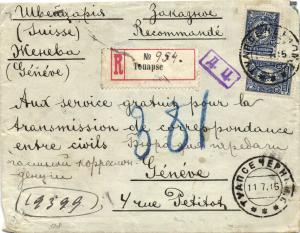 Швейцарія Заказное
(Suisse) Recommandé
Женева
(Génève)
R № 954.
Touapse
Д.Ц.
Aux service gratuit pour la
transmission de correspondance
entre civils Бюро для передачи
частной корреспон-
денціи
381
Génève
(19399) 4 rue Petitot
ТУАПСЕ ЧЕРН.
11.7.16